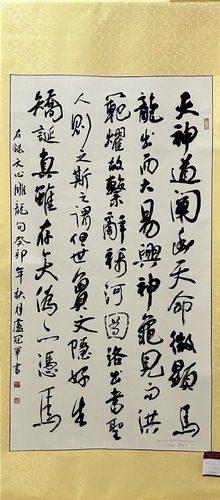 夫神道闡幽天命微顯馬
龍出而大易興神龜見而洪
範耀故繫辭稱河圖洛出書聖
人則之斯之謂但世敻文隱好生
矯誕真雖存矣偽亦憑焉
右錄文心雕龍句癸卯年秋月盧冠軍書